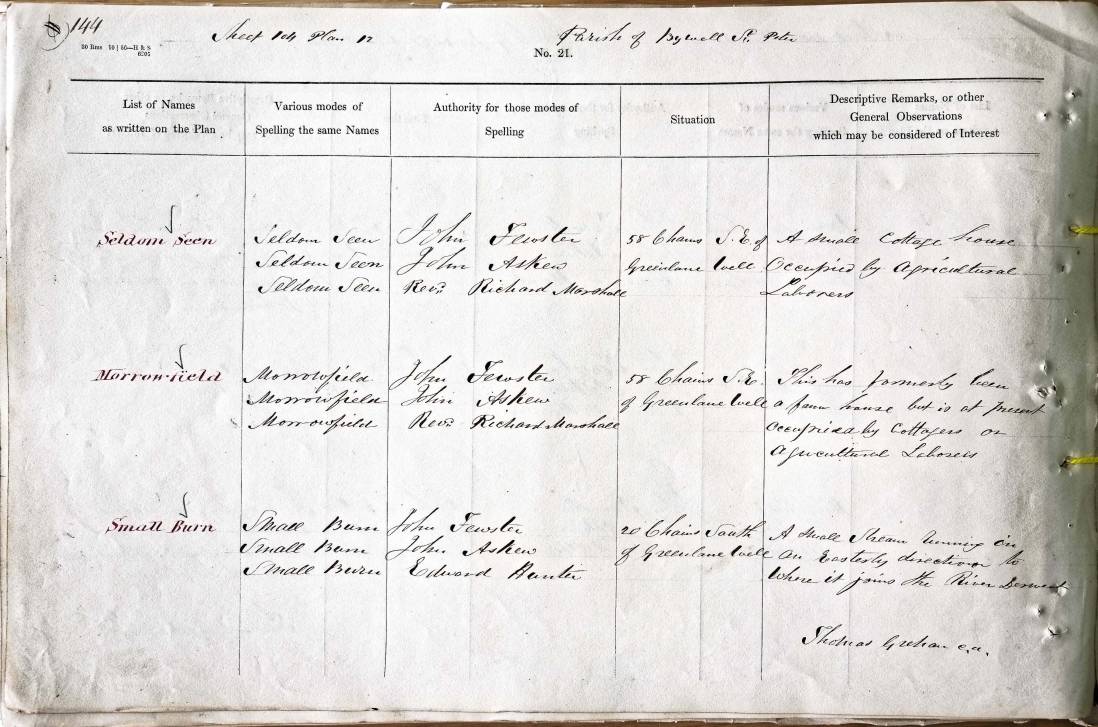 144
Sheet 104 Plan 12
Parish of Bywell St. Peter
No. 21.
List of Names
as written on the Plan
Various modes of
Spelling the same Names
Authority for those modes of
Spelling
Situation
Descriptive Remarks, or other
General Observations
which may be considered of Interest
Seldom Seen
Seldom Seen
Seldom Seen
Seldom Seen
John Fewster
John Askew
Revd. Richard Marshall
58 Chains S.E. of
Greenlane Well
A small Cottage house
Occupied by Agricultural
Laborers
Morrowfield
Morrowfield
Morrowfield
Morrowfield
John Fewster
John Askew
Revd. Richard Marshall
58 Chains S.E.
of Greenlane Well
This has formerly been
a farm house but is at present
occupied by Cottagers or
Agricultural Laborers
Small Burn
Small Burn
Small Burn
Small Burn
John Fewster
John Askew
Edward Hunter
20 Chains South
of Greenlane Well
A small Stream running in
an Easterly direction to
Where it joins the River Derwent
Thomas c.a.